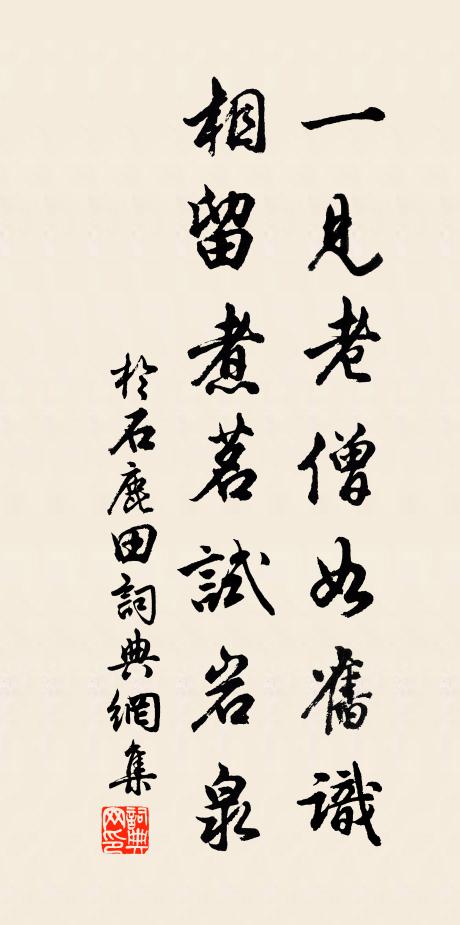 一見老僧如舊識
相留煮茗試岩泉
於石鹿田詞典網集
詞典网印